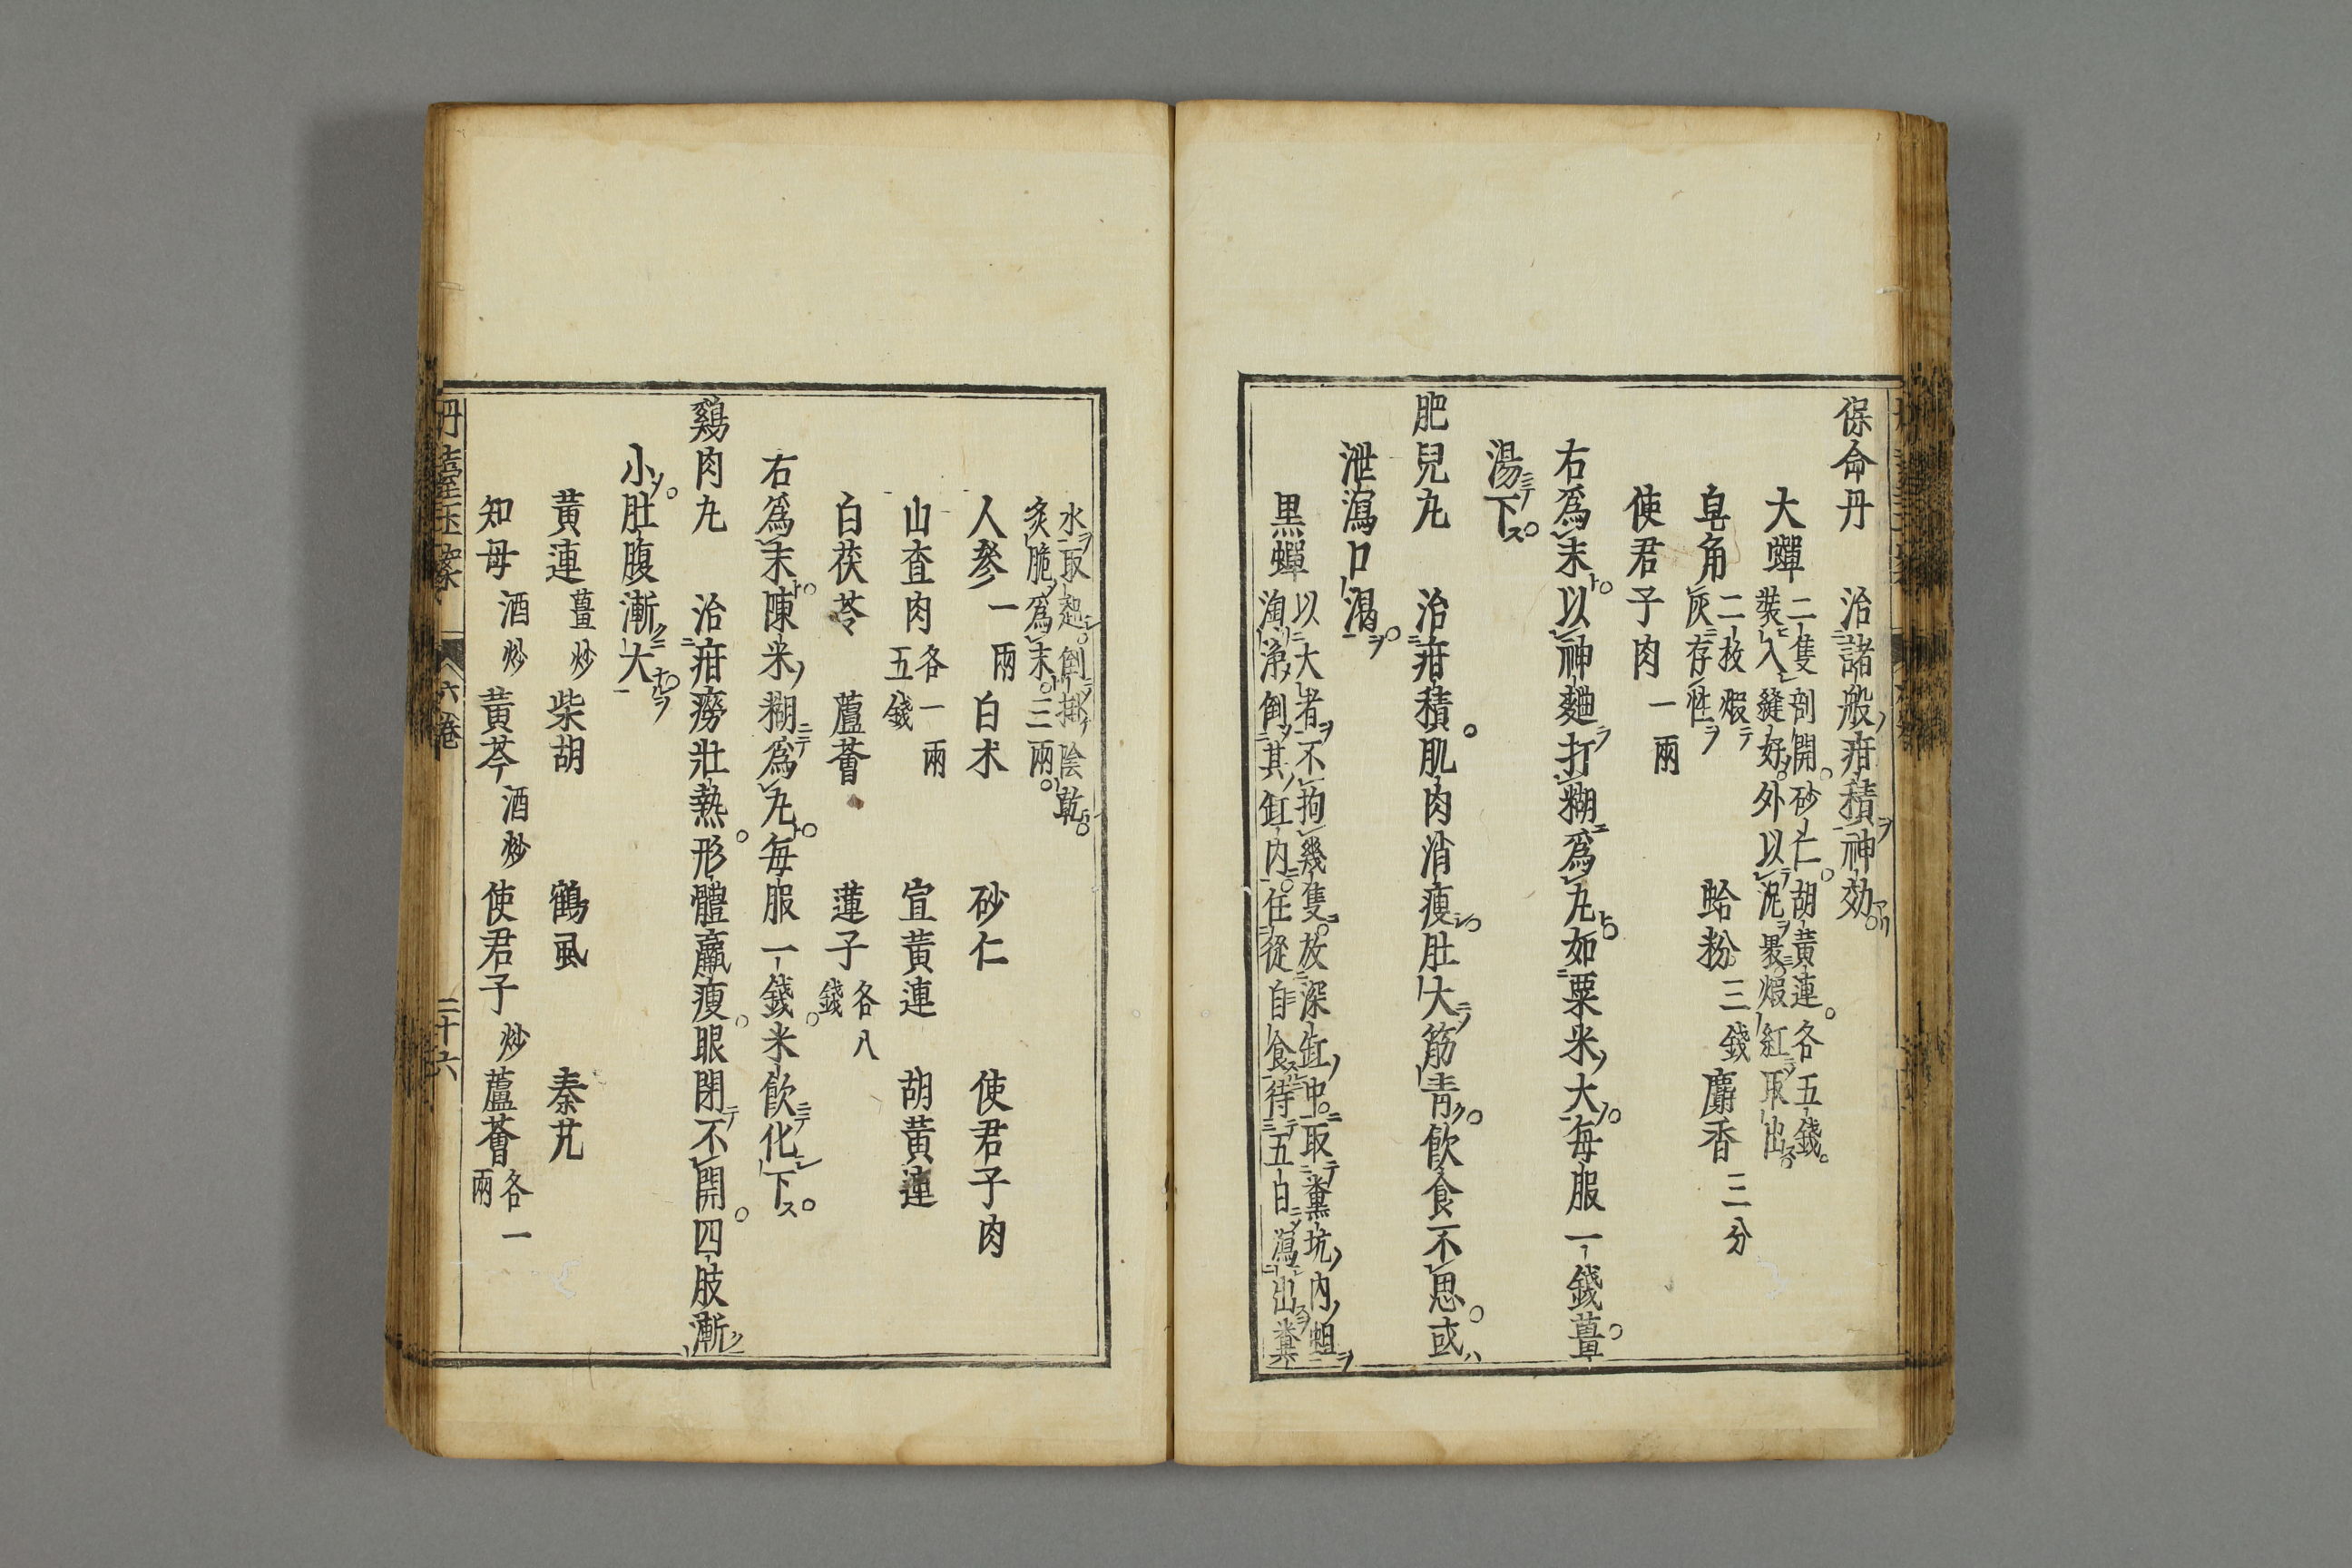 保命丹　治諸般疳積神効
大蟬　二隻剖開砂仁胡黄連各五錢
裝入縫好外以泥裹煆紅取出
皂角　二枚煆
灰存性　蛤粉三錢　麝香三分
使君子肉一兩
右爲末以神麯打糊爲丸如粟米大每服一錢薑
湯下
肥兒丸　治疳積肌肉消瘦肚大筋青飲食不思或
泄瀉口渴
黒蟬　以大者不拘幾隻放深缸中取糞坑内蛆
淘淨倒其缸内任從自食待五日瀉出糞
水取起倒掛陰乾
炙脆爲末三兩
人參一兩　白朮　砂仁　使君子肉
山査肉　各一兩
五錢　宣黄連　胡黄連
白茯苓　蘆薈　蓮子　各八
錢
右爲末陳米糊爲丸每服一錢米飲化下
鷄肉丸　治疳癆壯熱形體羸瘦眼閉不開四肢漸
小肚腹漸大
黄連薑炒　柴胡　鶴虱　秦艽
知母酒炒　黄芩酒炒　使君子炒　蘆薈　各一
兩
丹臺玉案　六卷　二十六